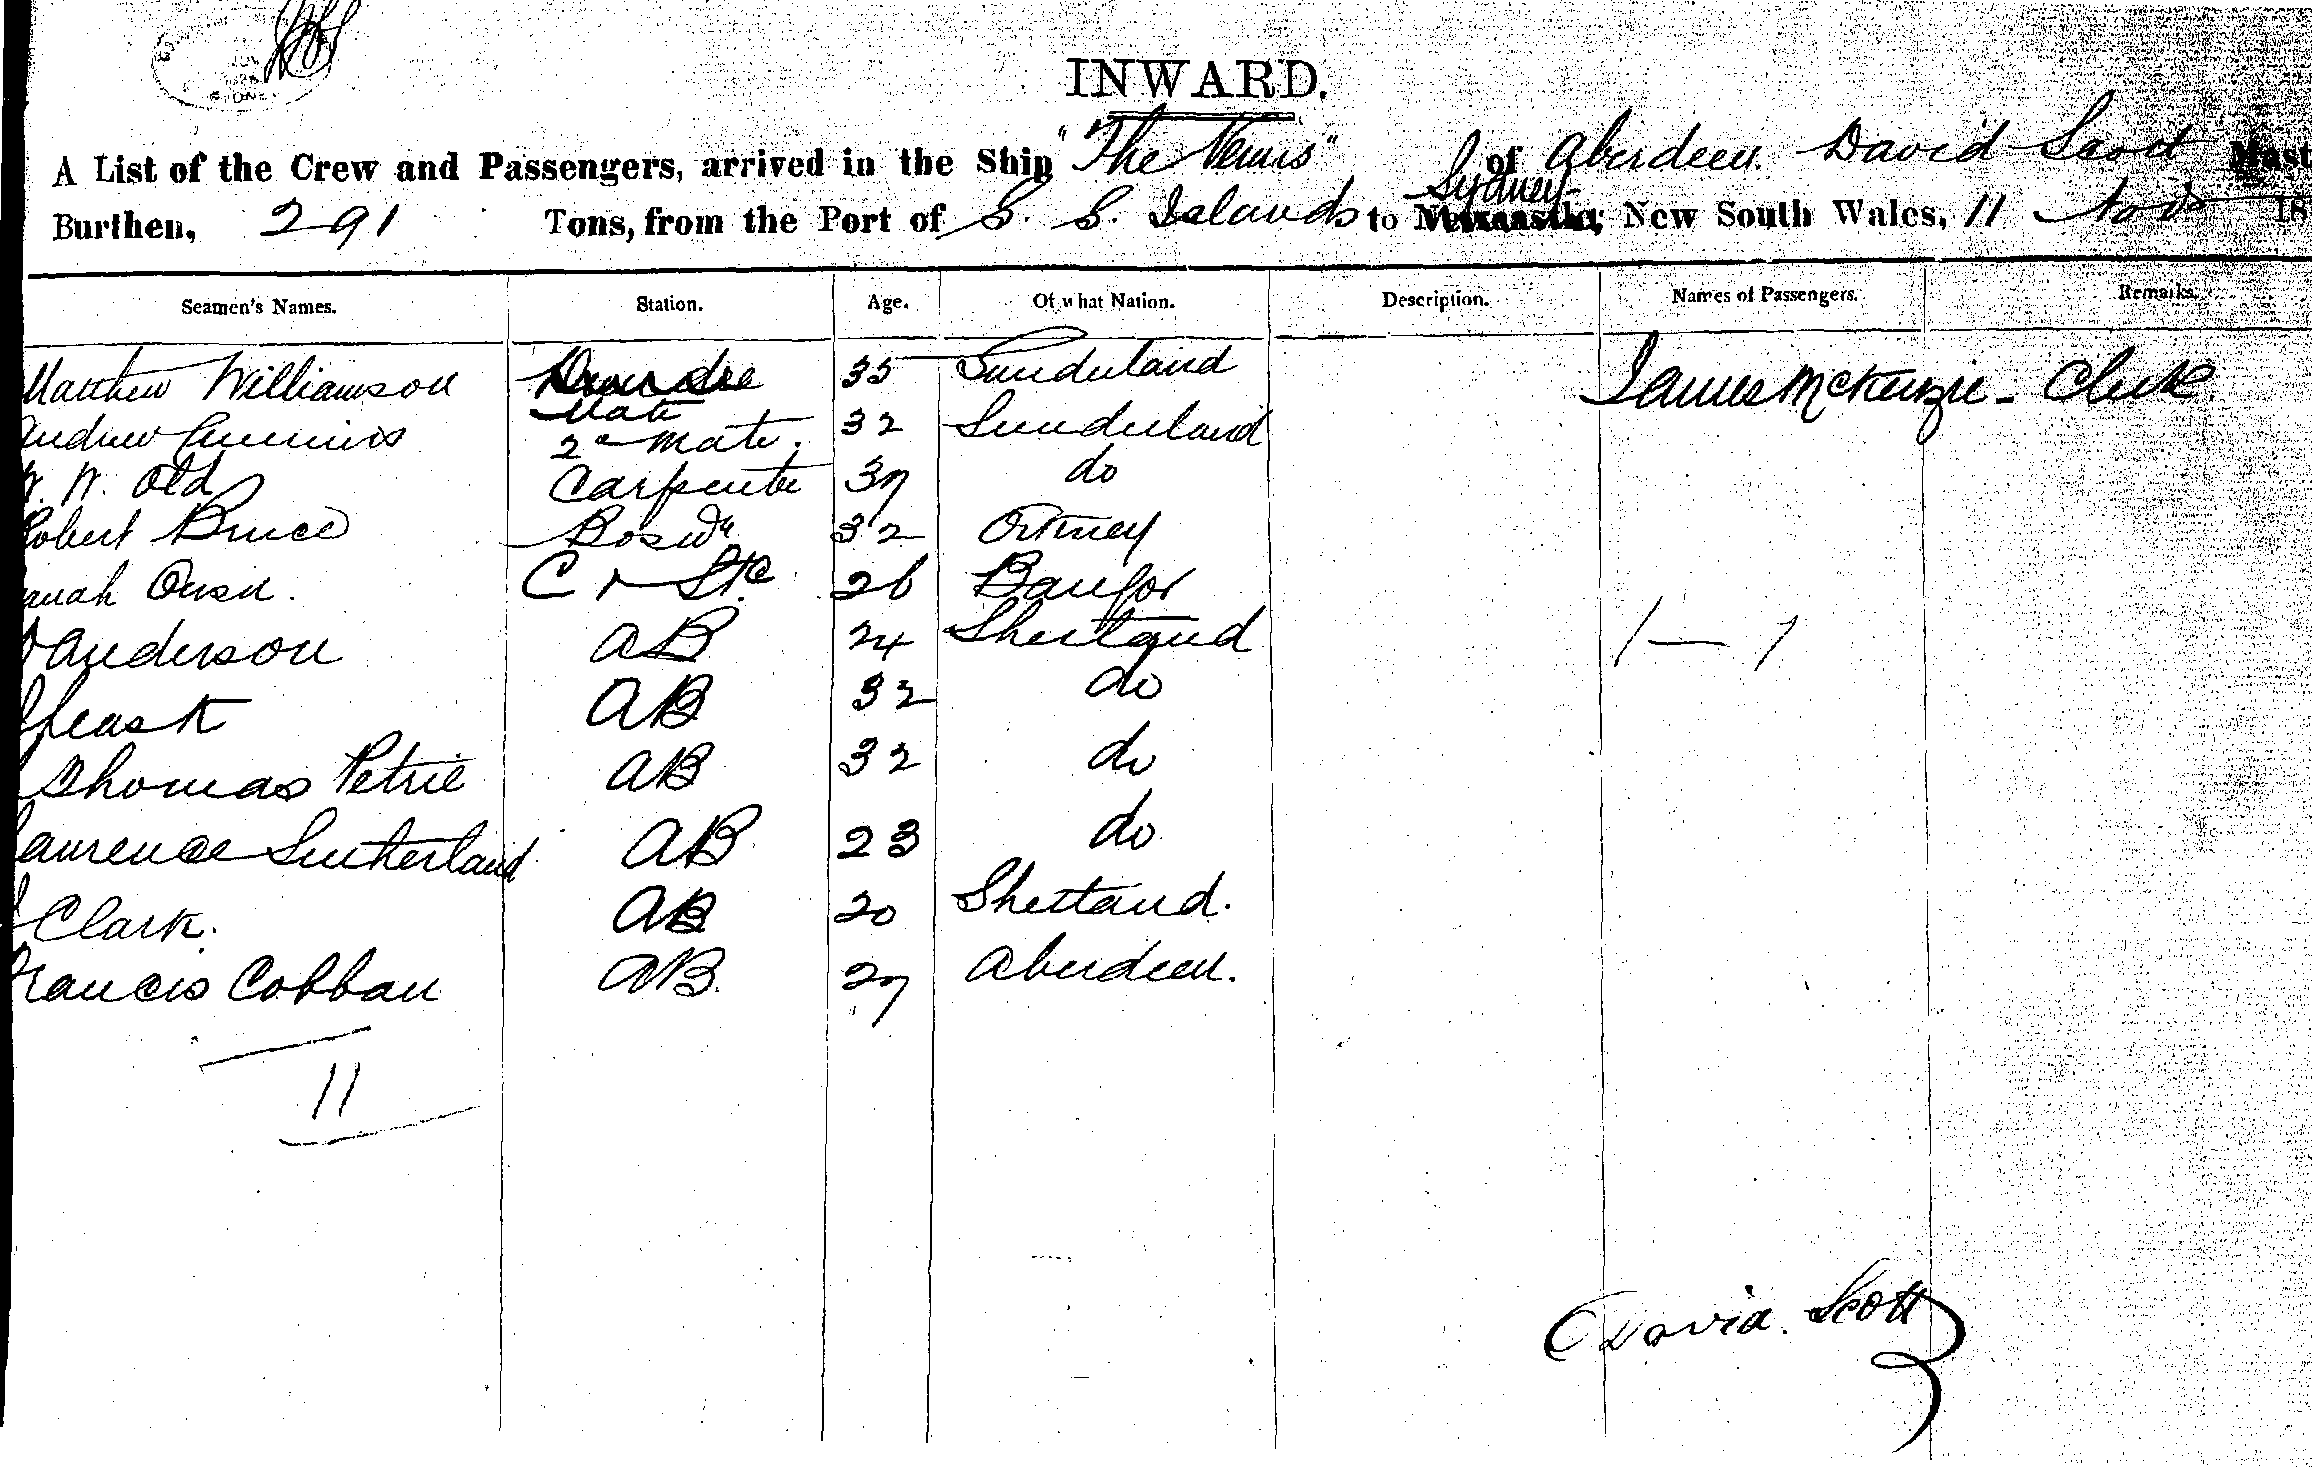 INWARD.
A List of the Crew and Passengers, arrived in the Ship "The Venus" of Aberdeen. David Scott Mast
Burthen, 291 Tons, from the Port of S. S. Islands to Sydney New South Wales, 11 Novr 18
Seamen's Names. Station. Age. Of what Nation. Description. Names of Passengers. Remarks.
Matthew Williamson Mate 35 Sunderland James McKenzie - Clerk
Andrew 2d Mate. 32 Sunderland
W. Old Carpenter 37 do
Robert Bruce Bosun 32 Orkney
C & Std 26 Bangor
Anderson AB 24 Shetland 1 — 1
AB 32 do
Thomas Petrie AB 32 do
Laurence Sutherland AB 23 do
Clark. AB 20 Shetland.
Francis Cobban AB. 27 Aberdeen.
11
David Scott